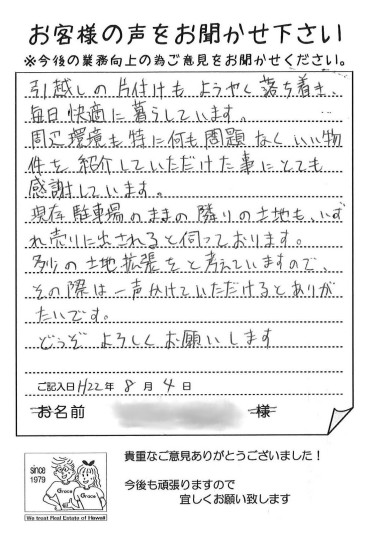 お客様の声をお聞かせ下さい
※今後の業務向上の為ご意見をお聞かせください。
引越しの片付けもようやく落ち着き、
毎日快適に暮らしています。
周辺環境も特に何も問題なくいい物
件を紹介していただけた事にとても
感謝しています。
現存駐車場のままの隣りの土地も、いず
れ売りに出されると伺っております。
多少の土地拡張をと考えていますので、
その際は一声かけていただけるとありが
たいです。
どうぞよろしくお願いします
ご記入日 H22年 8月 4日
お名前 様
since
1979
Grace
Grace
We trust Real Estate of Hawaii
貴重なご意見ありがとうございました!
今後も頑張りますので
宜しくお願い致します